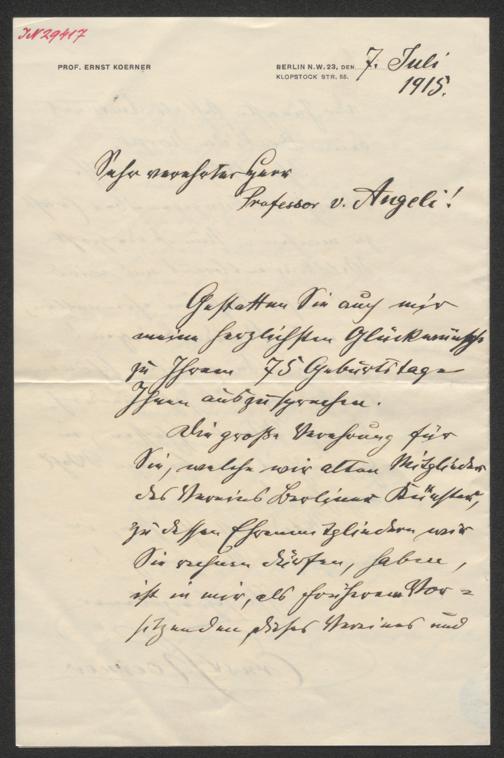 IN 29417
PROF. ERNST KOERNER
BERLIN N.W. 23, DEN 7. Juli
KLOPSTOCK STR. 55.
1915.
Sehr verehrter Herr
Professor v. Angeli!
Gestatten Sie auch mir
meine herzlichsten Glückwünsche
zu Ihrem 75 Geburtstage
Ihnen auszusprechen.
Die große Verehrung für
Sie, welche wir alten Mitglieder
des Vereins Berliner Künstler,
zu dessen Ehrenmitgliedern wir
Sie rechnen dürfen, haben,
ist in mir, als früherem Vor=
sitzenden dieses Vereines und